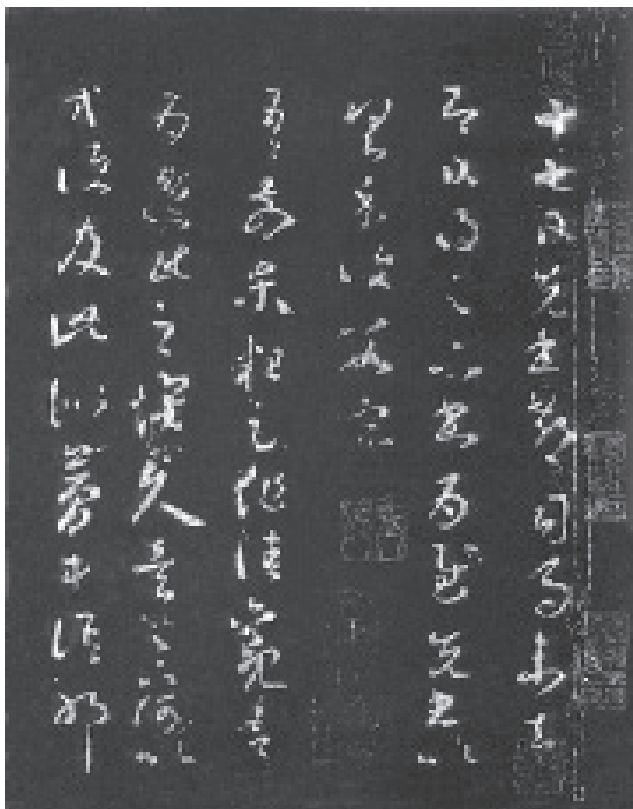 十七日先書郗司馬未去
即日得足下書為慰先書以
具示復數字
吾前東粗足作佳觀吾
為逸民之懷久矣足下何以
方復及此似夢中語耶